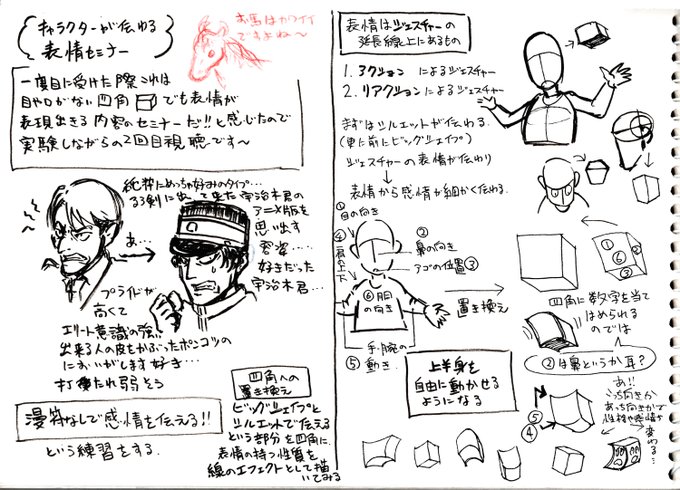 キャラクターが伝わる
表情セミナー
お馬はカワイイ
ですよね〜
一度目に受けた際これは
目や口がない四角でも表情が
表現出きる内容のセミナーだ!!と感じたので
実験しながらの2回目視聴です〜
純粋にめっちゃ好みのタイプ…
るろ剣に出て来た宇治木君の
アニメ版を
思い出す
容姿……
好きだった
宇治木君…
あ…
プライドが
高くて
エリート意識の強い
出来る人の皮をかぶったポンコツの
においがします好き…
打たれ弱そう
漫符なしで感情を伝える!!
という練習をする。
四角への
置き換え
ビッグシェイプと
シルエットで伝える
という部分を四角に、
表情の持つ性質を
線のエフェクトとして描
いてみる
表情はジェスチャーの
延長線上にあるもの
1. アクションによるジェスチャー
2. リアクションによるジェスチャー
まずはシルエットが伝わる。
(更に前にビッグシェイプ)
ジェスチャーの表情が伝わり
表情から感情が細かく伝わる。
①目の向き
②
鼻の向き
アゴの位置③
④
肩の上下
⑥胴
の向き
手・腕の
⑤動き
置き換え
上半身を
自由に動かせる
ようになる
①
⑥
②
③
四角に数字を当て
はめられる
のでは
②は鼻というか耳?
⑤
④
あ!!
こっち向きか
あっち向きかで
性格や感情が
変わる…